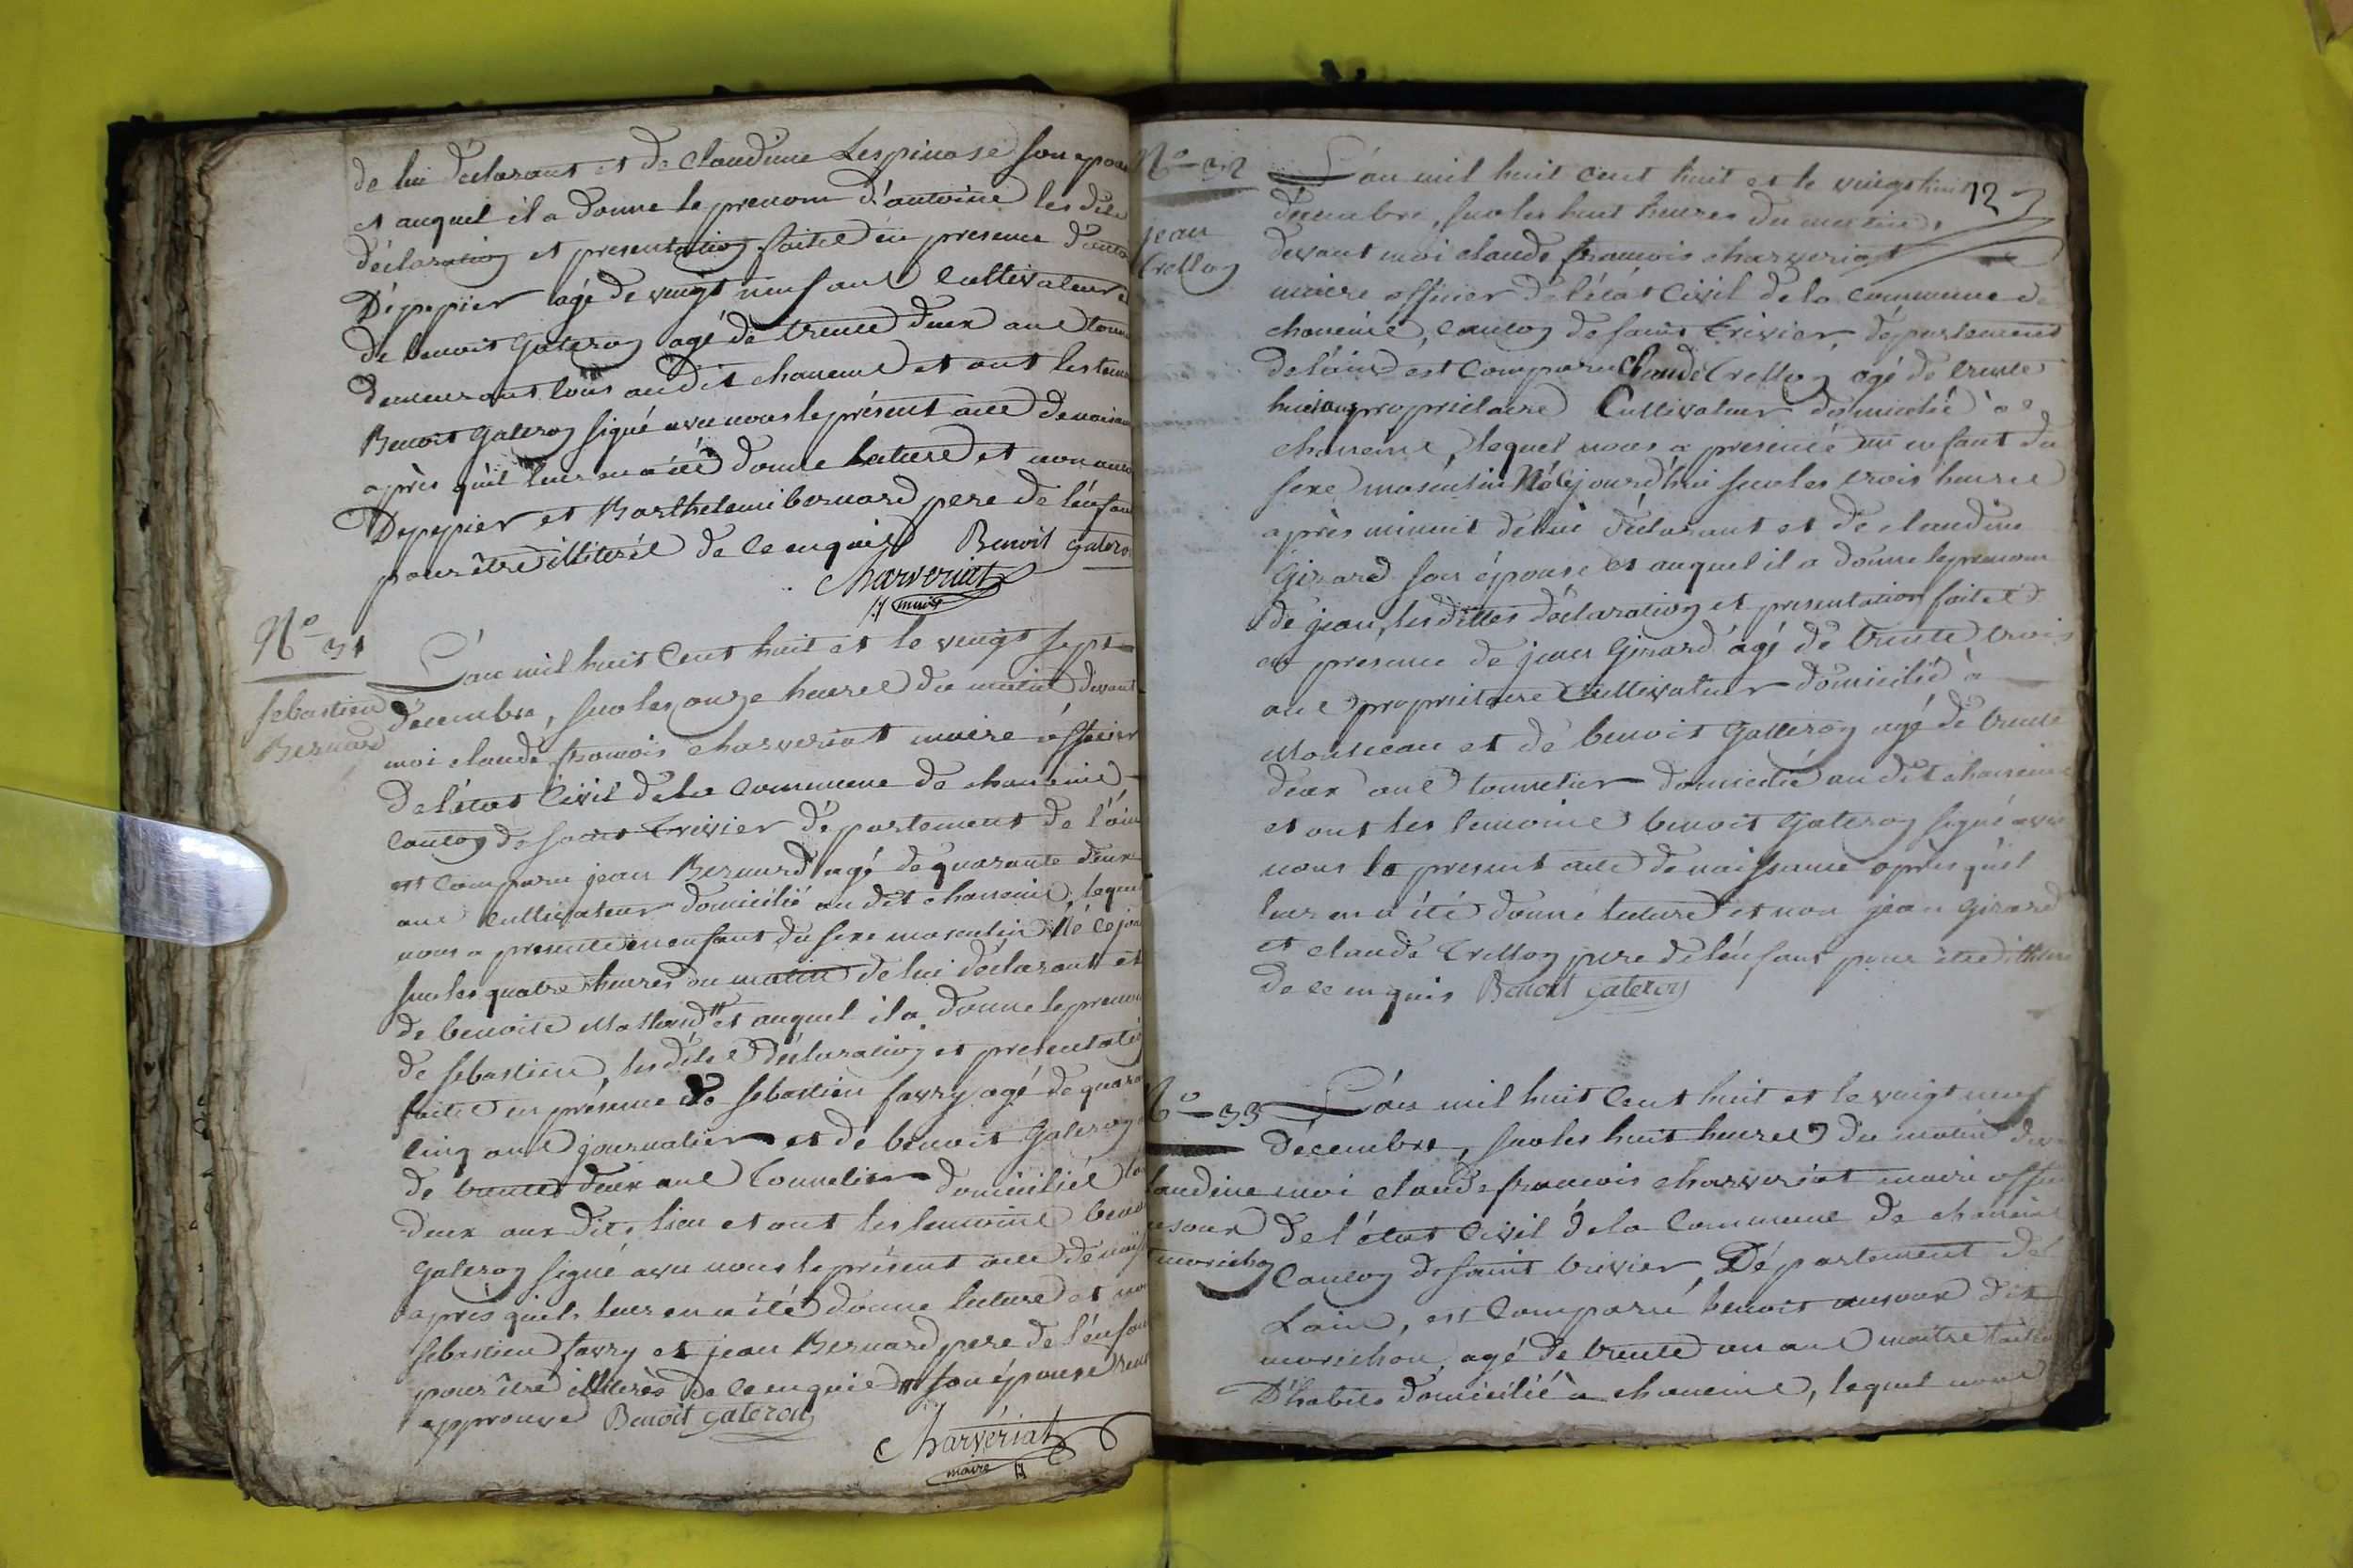 de lui déclarant et de claudine Lespinase son epou
et auquel il a donne le prenom d'antoine les dite
déclaration et presentation faite en presence d'anto
Dépepier agé de vingt neuf ans Cultivateur
de benoit Gateron agé de trente deux ans tonn
demeurants tous audit chaneins et ont les temo
Benoit Gateron signé avec nous le présent acte de naissan
après qu'il leur en a été donne lecture et non anto
Depepier et Barthelemi bernard pere de l'enfant
pour être illiterés de ce enquis Benoit Gatero
Charveriat
maire
N° 31
sebastien
Bernard
L'an mil huit Cent huit et le vingt sept
décembre, sur les onze heures du matin devant
moi claude francois charveriat maire officier
de l'état Civil de la Commune de chaneins
Canton de saint trivier département de l'ain
est Comparu jean Bernard agé de quarante deux
ans Cultivateur domicilié au dit chaneins, leque
nous a presenté un enfant du sexe masculin Né ce jou
sur les quatre heures du matin de lui déclarant et
de benoite et auquel il a donne le prenom
de sebastien, les dites déclaration et presentatio
faites en présence de sebastien favry agé de quara
cinq ans journalier et de benoit Gateron
de trente deux ans Tonnelier domiciliés
deux aux dits lieu et ont les temoins beno
Gateron signé avec nous le présent acte de naiss
après qu'il leur en a été donne lecture et no
sebastien favry et jean Bernard pere de l'enfan
pour être illiterés de ce enquis # son épouse renv
approuve Benoit Gateron
Charvériat
maire
12
N° 32
jean
Crellon
L'an mil huit Cent huit et le vingt huit
décembre, sur les huit heures du matin,
devant moi claude francois charveriat
maire officier de l'état Civil de la Commune de
chaneins, Canton de saint Trivier, département
de l'ain est Comparu Claude Crellon agé de trente
huit ans proprietaire Cultivateur domicilié a
chaneins, lequel nous a presenté un enfant du
sexe masculin Né cejourd'hui sur les trois heures
après minuit de lui déclarant et de claudine
Girard son épouse et auquel il a donne le prenom
de jean, les dittes déclaration et presentation faites
en presence de jean Girard agé de trente trois
ans proprietaire Cultivateur domicilié à
Monceau et de benoit Galleron agé de trente
deux ans tonnelier domicilié au dit chaneins
et ont les temoins benoit Gateron signé avec
nous le present acte de naissance après qu'il
leur en a été donné lecture et non jean Girard
et claude Crellon pere de l'enfant pour être illitere
de ce enquis Benoit Gateron
N° 33
laudine
morichon
L'an mil huit Cent huit et le vingt neuf
décembre, sur les huit heures du matin dev
moi claude francois charveriat maire offici
de l'état Civil de la Commune de chaneins
Canton de saint trivier, Département de
Lain, est Comparu benoit dit
morichon agé de trente un ans maitre taill
D'habits domicilié à chaneins, lequel nous